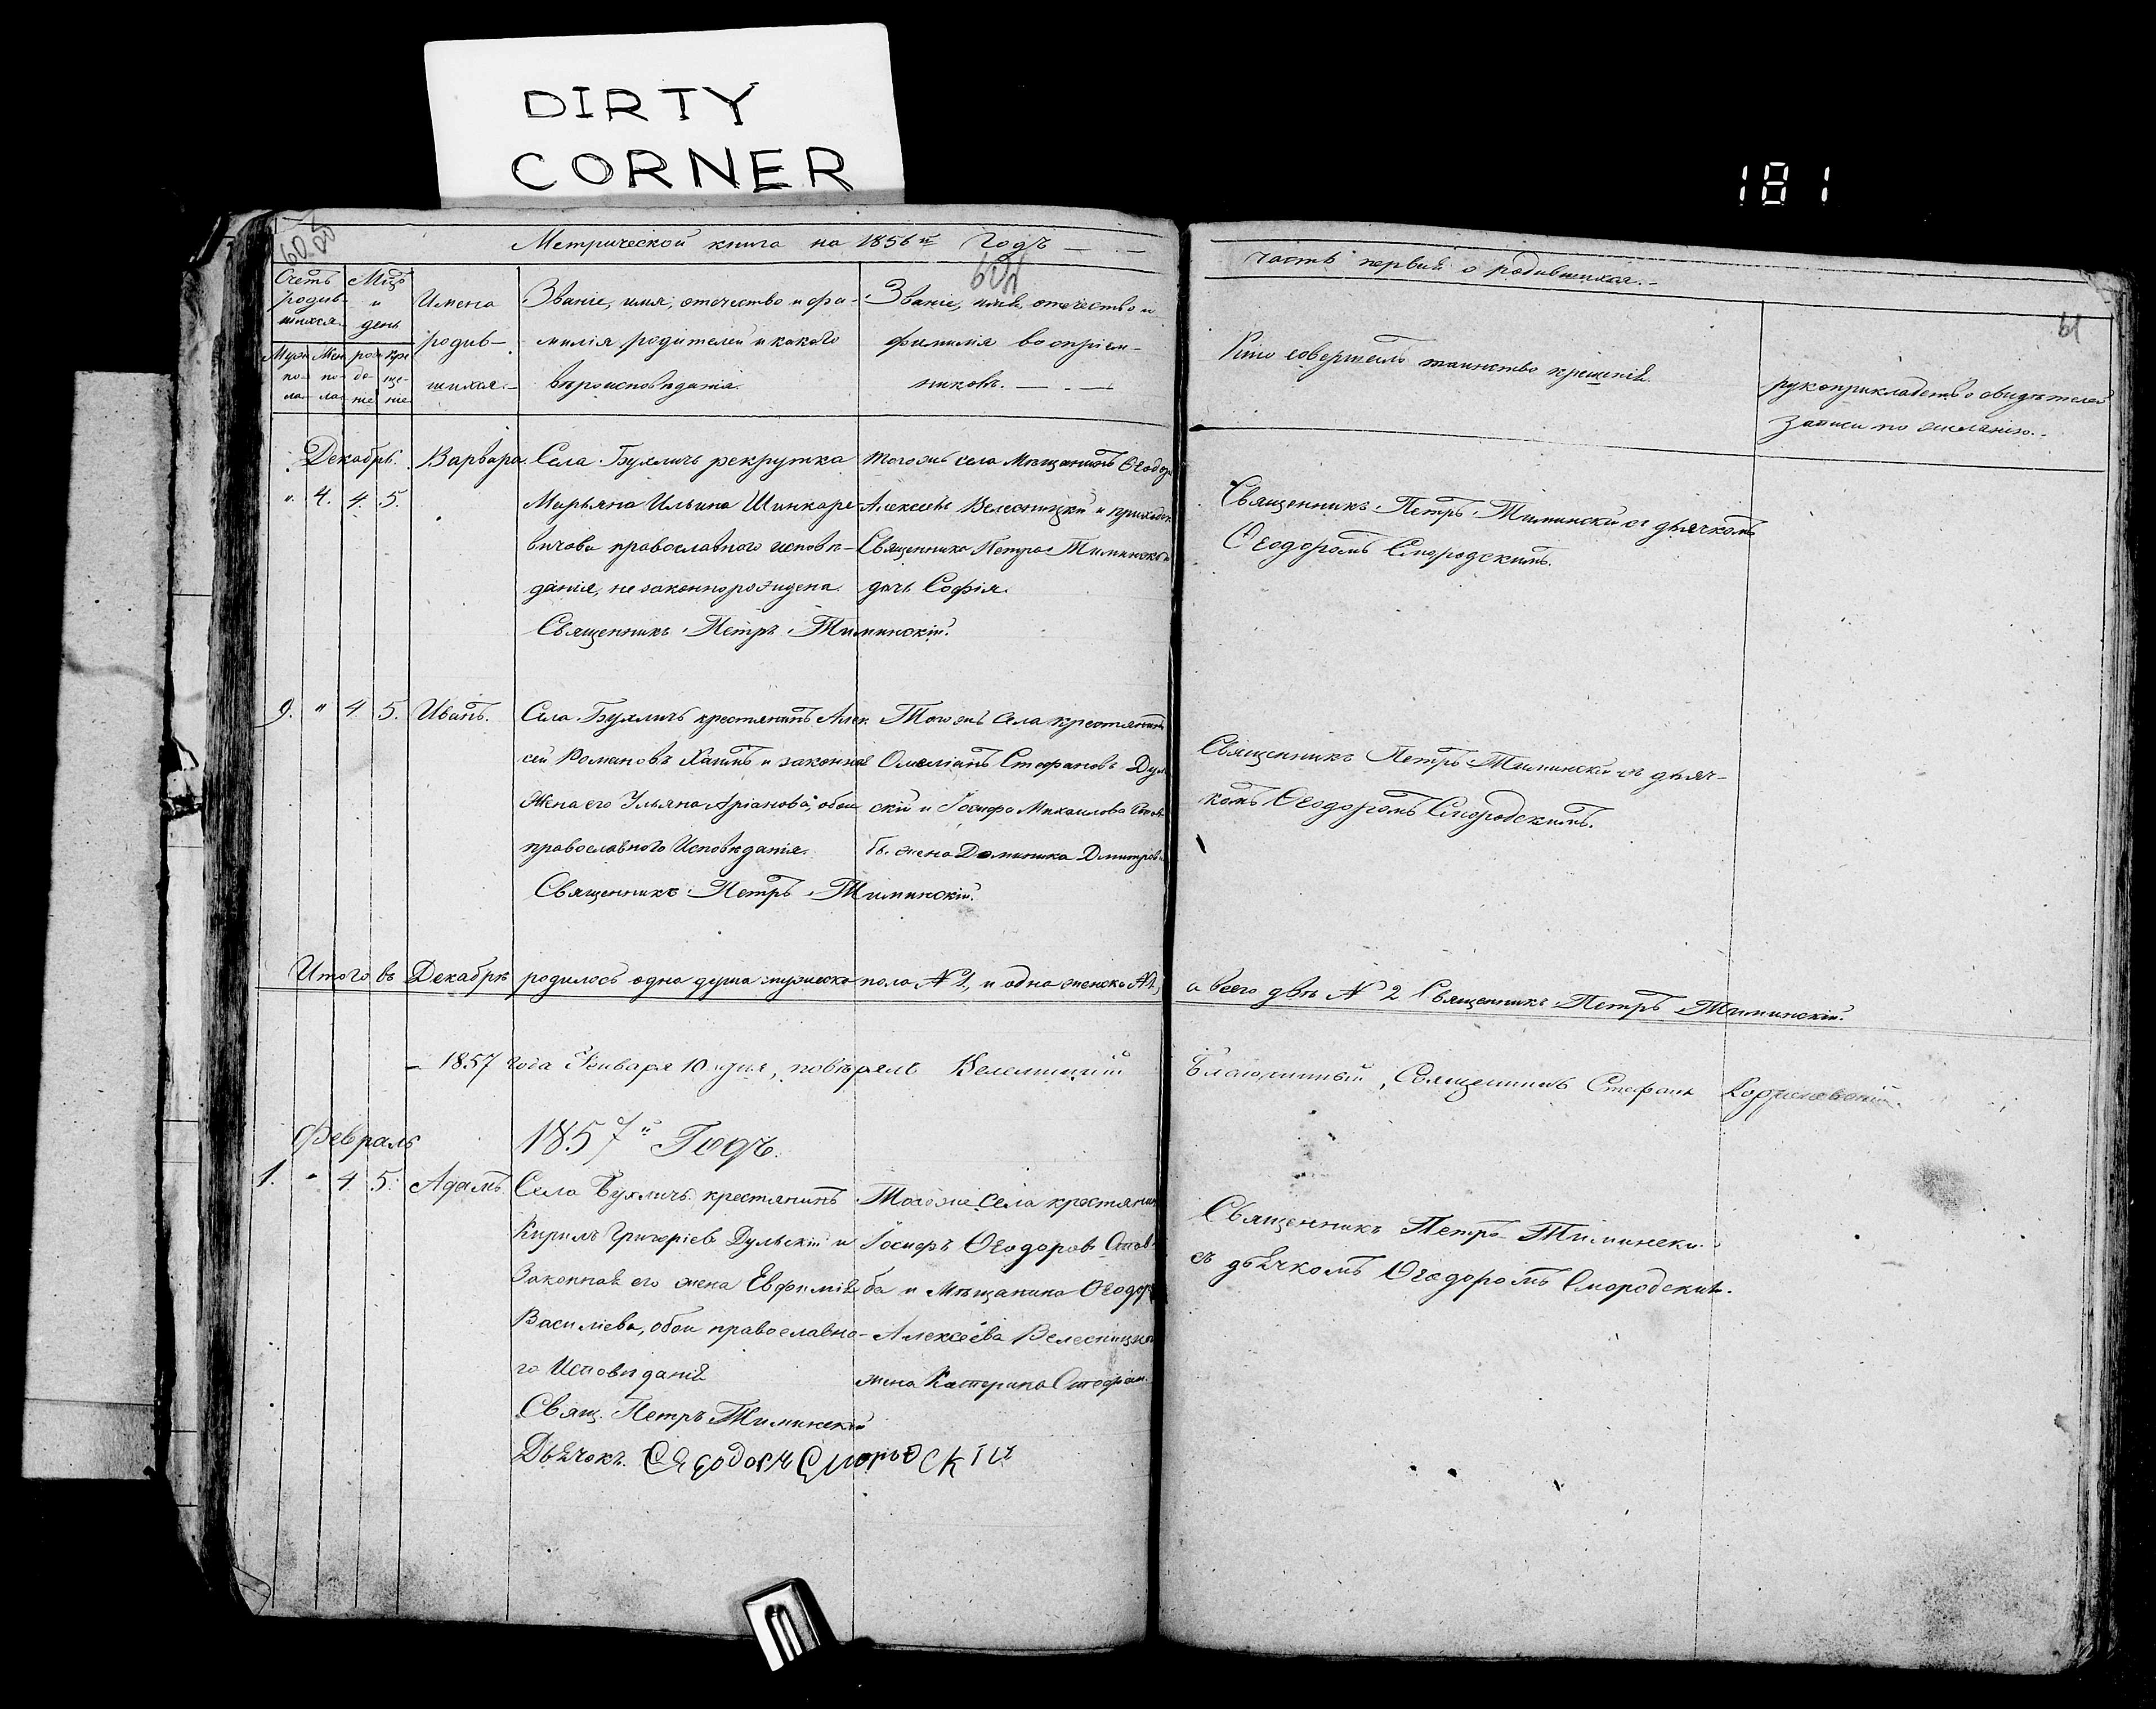 DIRTY
CORNER
181
Метрической книга на 1856й Годъ
Часть первая о родившихся.
61
Счетъ родив-шихся
Мцъ и день
Имена родив-шихся.
Званіе, имя, отечество и фа-
милія родителей и какого
вѣроисповѣданія.
Званіе, имя, отечество и
фамилія воспріем-
никовъ.
Кто совершалъ таинство крещенія.
рукоприкладство свидѣтелей
записи по желанію.
Муж. по-ла
Жен. по-ла
рож-де-ніе
кре-ще-ніе
Декабрь.
" 4. 4. 5.
Варвара.
Села Бухличъ рекрутка
Марьяна Ильина Шинкаре-
вичова православного исповѣ-
данія, незаконнорождена.
Священникъ Петръ Тиминскій.
того жъ села мѣщанинъ Ѳеодоръ
Алексѣевъ Велесницкій и
Священника Петра Тиминскаго
дочь Софія.
Священникъ Петръ Тиминскій съ дьячкомъ
Ѳеодоромъ Смородскимъ.
9. " 4. 5.
Иванъ.
Села Бухличъ крестянинъ Алек
сѣй Романовъ и законная
Жена его Ульяна, обои
православного Исповѣданія.
Священникъ Петръ Тиминскій.
Того жъ Села крестянинъ
Омеліанъ Стефановъ Дуль
скій и Іосифа Михаилова
жена Доминика Дмитрова
Священникъ Петръ Тиминскій съ дьяч-
комъ Ѳеодоромъ Смородскимъ.
Итого въ Декабрѣ родилось одна душа мужеска пола №1, и одна женска №1,
а всего двѣ № 2 Священникъ Петръ Тиминскій.
1857 года Января 10 дня, повѣрялъ
Благочинный, Священникъ Стефанъ
Февраль
1857й Годъ.
1. " 4. 5.
Адамъ
Села Бухличъ крестянинъ
Кирилъ Григоріевъ Дульскій и
Законная его жена Евфимія
Василіева, обои православно-
го Исповѣданія
Свящ. Петръ Тиминскій
Дьячокъ Ѳеодоръ Смородскій
Того же Села крестянинъ
Іосифъ Ѳеодоровъ
ба и мѣщанина Ѳеодора
Алексѣева Велесницкаго
жена Катерина Стефан.
Священникъ Петръ Тиминскій
съ дьячкомъ Ѳеодоромъ Смородскимъ.